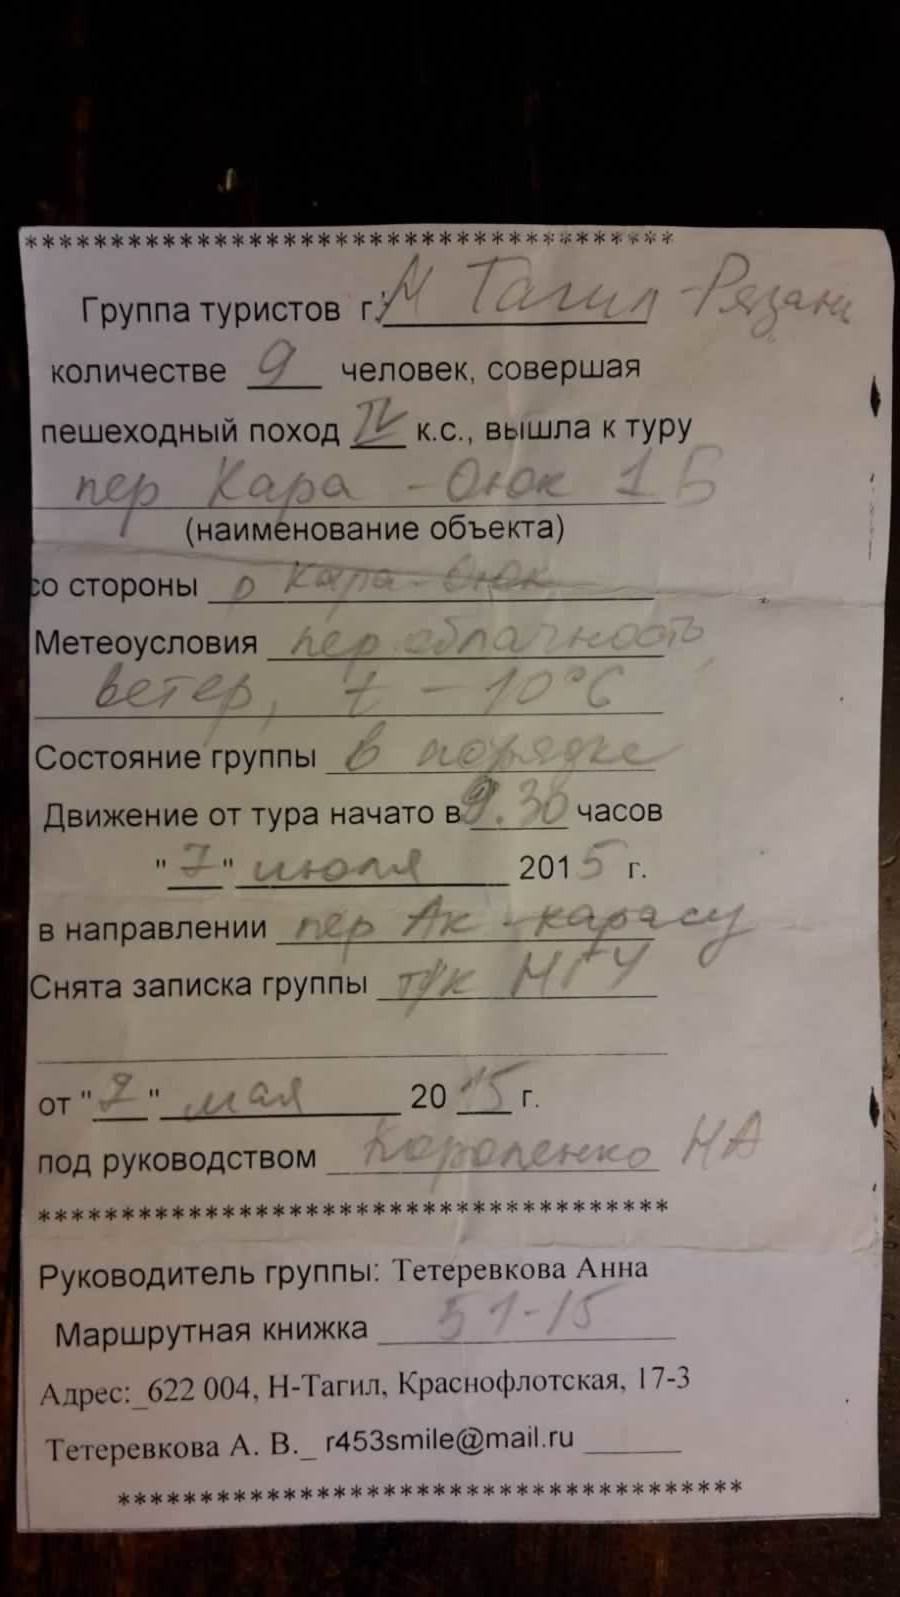 ***************************************
Группа туристов г. Н Тагил - Рязань
количестве 9 человек, совершая
пешеходный поход IV к.с., вышла к туру
пер Кара - Оюк 1Б
(наименование объекта)
со стороны р Кара-Оюк
Метеоусловия пер. облачность
ветер, t - 10°С
Состояние группы в порядке
Движение от тура начато в 9.30 часов
"7" июля 2015 г.
в направлении пер Ак - карасу
Снята записка группы т/к МГУ
от "7" мая 20 15 г.
под руководством Короленко НА
***************************************
Руководитель группы: Тетеревкова Анна
Маршрутная книжка 51-15
Адрес:_622 004, Н-Тагил, Краснофлотская, 17-3
Тетеревкова А. В._ r453smile@mail.ru
***************************************